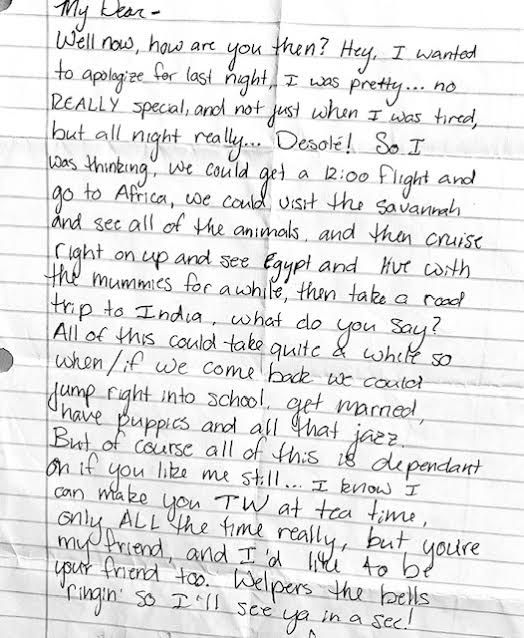 My Dear-
Well now, how are you then? Hey, I wanted
to apologize for last night, I was pretty... no
REALLY special, and not just when I was tired,
but all night really... Desolé! So I
was thinking, we could get a 12:00 flight and
go to Africa, we could visit the savannah
and see all of the animals, and then cruise
right on up and see Egypt and live with
the mummies for awhile, then take a road
trip to India, what do you say?
All of this could take quite a while so
when/if we come back we could
jump right into school, get married,
have puppies and all that jazz.
But of course all of this is dependant
on if you like me still... I know I
can make you TW at tea time,
only ALL the time really, but you're
my friend, and I'd like to be
your friend too. Welpers the bells
ringin' so I'll see ya in a sec!